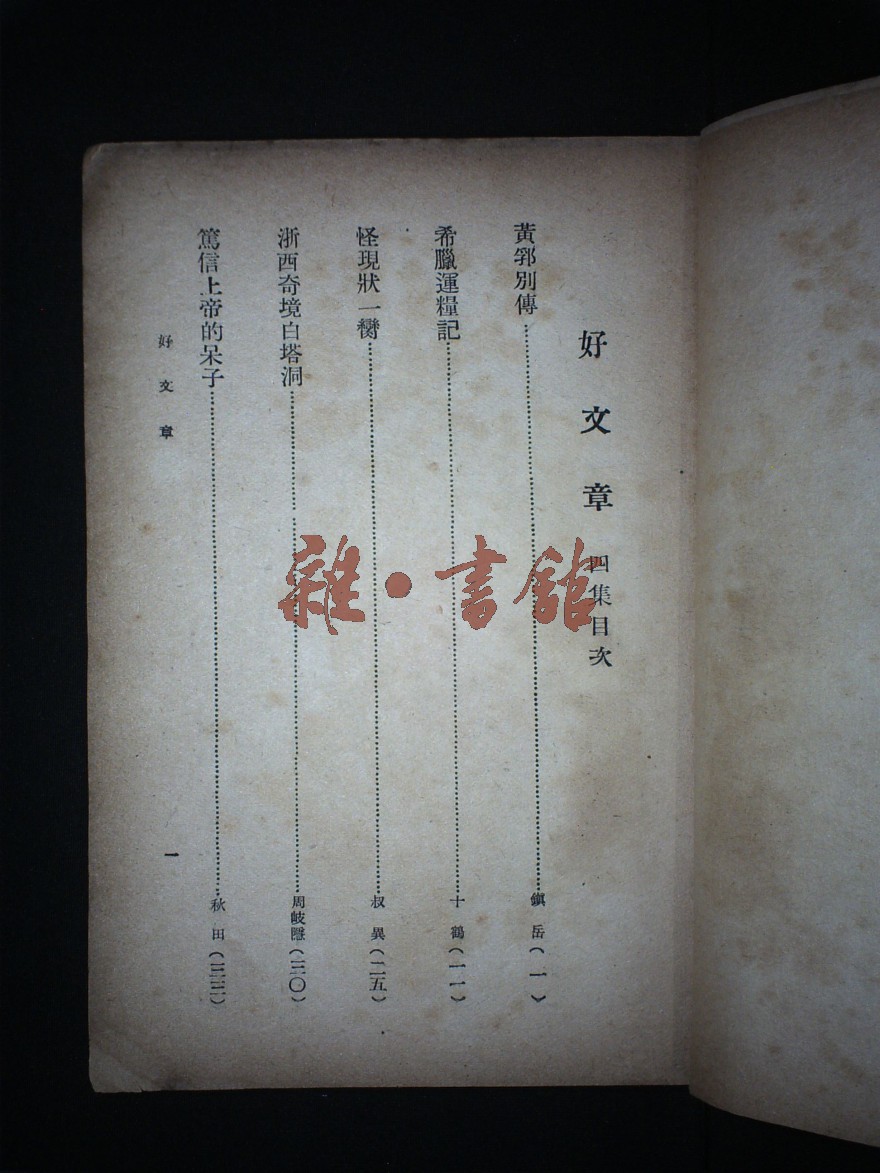 好文章 四集目次
黃郛別傳……鎭岳(一)
希臘運糧記……十鶴(一一)
怪現狀一臠……叔異(二五)
浙西奇境白塔洞……周岐隱(三〇)
篤信上帝的呆子……秋田(三三)
好文章
一
雜·書館